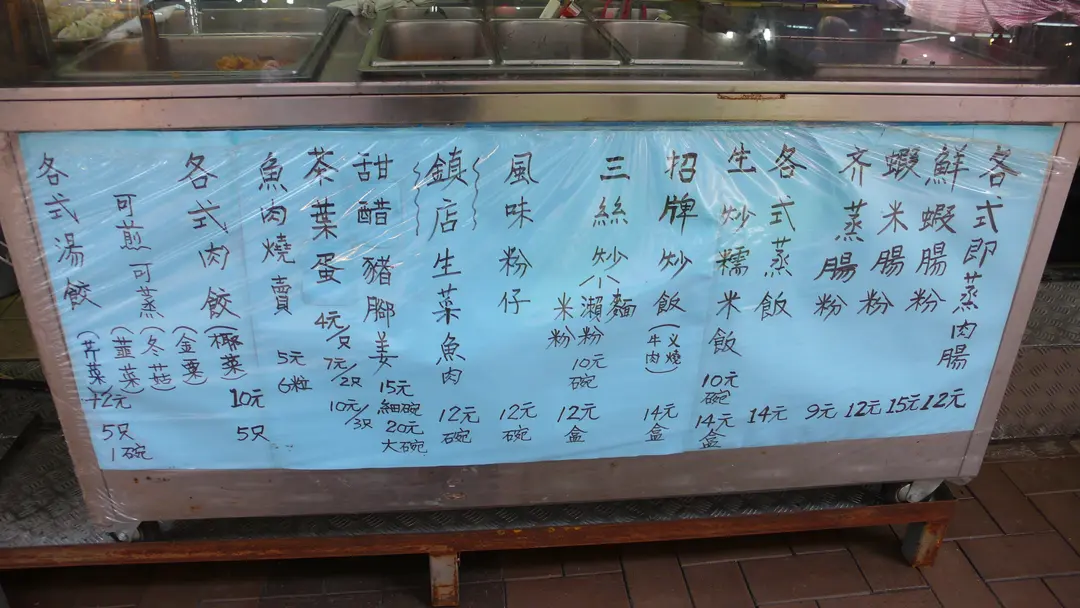 各式即蒸肉腸
12元
鮮蝦腸粉
15元
蝦米腸粉
12元
齐蒸腸粉
9元
各式蒸飯
14元
生炒糯米飯
10元
碗
14元
盒
招牌炒飯
(叉燒
牛肉)
14元
盒
三絲炒
麵
瀨粉
米粉
10元
碗
12元
盒
風味粉仔
12元
碗
鎮店生菜魚肉
12元
碗
甜醋豬腳姜
15元
細碗
20元
大碗
茶葉蛋
4元/只
7元/2只
10元/3只
魚肉燒賣
5元
6粒
各式肉餃
可煎可蒸
(椰菜)
(金粟)
(冬菇)
(韮菜)
(芹菜)
10元
5只
各式湯餃
12元
5只
1碗